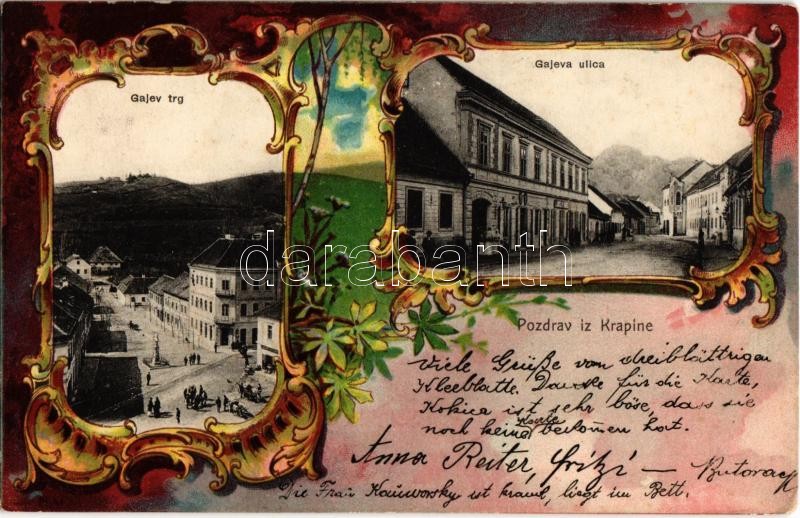 Gajev trg
Gajeva ulica
darabanth
Pozdrav iz Krapine
Viele Grüße vom dreiblättrigen
Kleeblatte. Danke für die Karte,
Kokica ist sehr böse, dass sie
Karte
noch keine bekomen hat.
Anna Reiter, Fritzi — Butorack
Die Frau Kauworsky ist krank, liegt im Bett.